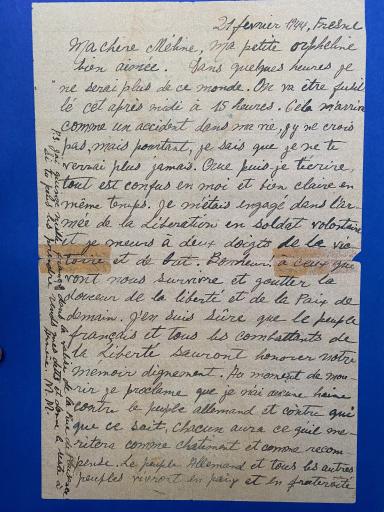 21 février 1944, Fresne
Ma chère Méline, ma petite orpheline
bien aimée. Dans quelques heures je
ne serai plus de ce monde. On va être fusil-
lé cet après midi à 15 heures. Cela m'arrive
comme un accident dans ma vie, j'y ne crois
pas, mais pourtant, je sais que je ne te
verrai plus jamais. Que puis je t'écrire,
tout est confus en moi et bien claire en
même temps. Je m'étais engagé dans l'ar-
mée de la Libération en soldat volontaire
et je meurs a deux doigts de la vic-
toire et de but. Bonheur! a ceux qui
vont nous survivre et goutter la
douceur de la liberté et de la Paix de
demain. J'en suis sûre que le peuple
français et tous les combattants de
la Liberté sauront honorer notre
memoir dignement. Au moment de mou-
rir je proclame que je n'ai aucune haine
contre le peuple allemand et contre qui
que ce soit, chacun aura ce qu'il me-
ritera comme chatiment et comme recom-
pense. Le peuple Allemand et tous les autres
peuples vivront en paix et en fraternité
P.S. J'ai quinze mille francs dans la valise de la rue de Plaisance
Si tu peus les prendre rends mes dets et donne le reste à
Armène M. M.